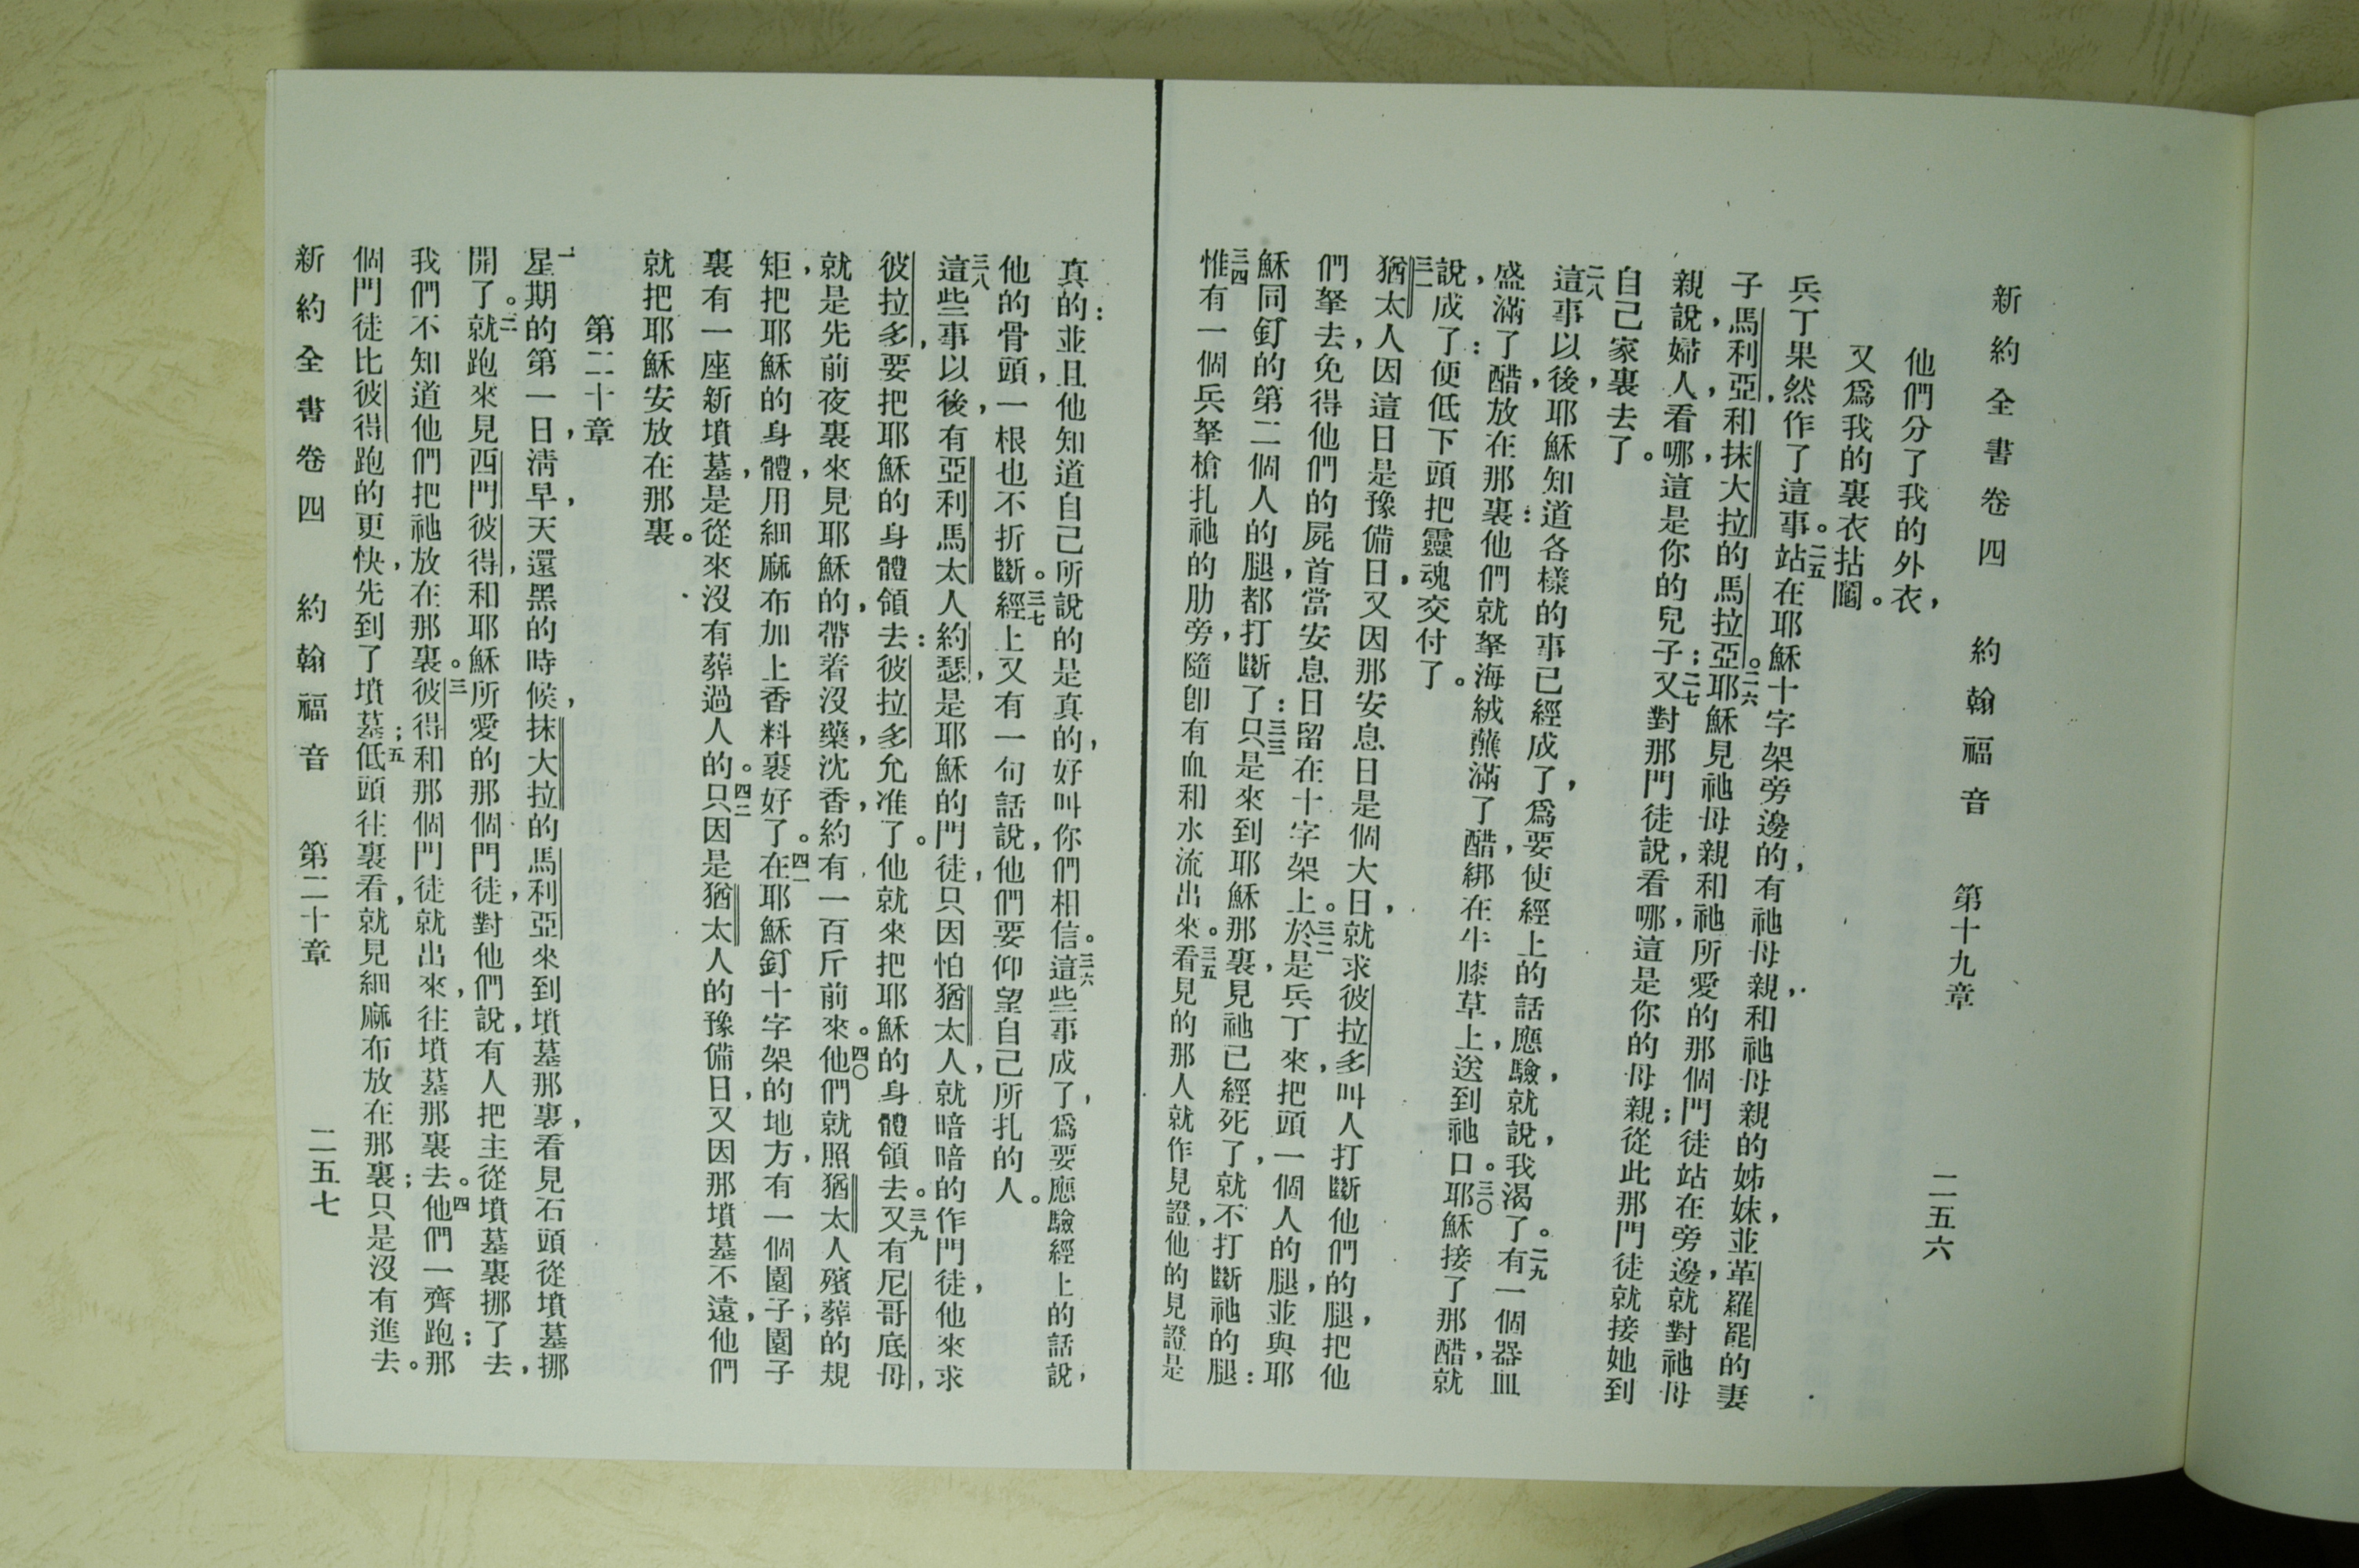 新約全書卷四　約翰福音　第十九章　二五六
他們分了我的外衣，
又爲我的裏衣拈鬮。
兵丁果然作了這事。二五站在耶穌十字架旁邊的，有祂母親，和祂母親的姊妹，並革羅罷的妻
子馬利亞，和抹大拉的馬拉亞。二六耶穌見祂母親和祂所愛的那個門徒站在旁邊，就對祂母
親說，婦人，看哪，這是你的兒子；二七又對那門徒說，看哪，這是你的母親；從此那門徒就接她到
自己家裏去了。
二八這事以後，耶穌知道各樣的事已經成了，爲要使經上的話應驗，就說，我渴了。二九有一個器皿
盛滿了醋，放在那裏：他們就拏海絨蘸滿了醋，綁在牛膝草上，送到祂口。三〇耶穌接了那醋，就
說，成了：便低下頭把靈魂交付了。
三一猶太人因這日是豫備日，又因那安息日是個大日，就求彼拉多叫人打斷他們的腿，把他
們拏去，免得他們的屍首當安息日留在十字架上。三二於是兵丁來，把頭一個人的腿，並與耶
穌同釘的第二個人的腿，都打斷了：三三只是來到耶穌那裏，見祂已經死了，就不打斷祂的腿：
三四惟有一個兵拏槍扎祂的肋旁，隨卽有血和水流出來。三五看見的那人就作見證，他的見證是
真的：並且他知道自己所說的是真的，好叫你們相信。三六這些事成了，爲要應驗經上的話說，
他的骨頭，一根也不折斷。三七經上又有一句話說，他們要仰望自己所扎的人。
三八這些事以後，有亞利馬太人約瑟，是耶穌的門徒，只因怕猶太人，就暗暗的作門徒，他來求
彼拉多，要把耶穌的身體領去：彼拉多允准了。他就來把耶穌的身體領去。三九又有尼哥底母，
就是先前夜裏來見耶穌的，帶着沒藥，沈香，約有一百斤前來。四〇他們就照猶太人殯葬的規
矩，把耶穌的身體，用細麻布加上香料裹好了。四一在耶穌釘十字架的地方，有一個園子；園子
裏有一座新墳墓，是從來沒有葬過人的。四二只因是猶太人的豫備日，又因那墳墓不遠，他們
就把耶穌安放在那裏。
第二十章
一星期的第一日，淸早，天還黑的時候，抹大拉的馬利亞來到墳墓那裏，看見石頭從墳墓挪
開了。二就跑來見西門彼得，和耶穌所愛的那個門徒，對他們說，有人把主從墳墓裏挪了去，
我們不知道他們把祂放在那裏。三彼得和那個門徒就出來，往墳墓那裏去。四他們一齊跑；那
個門徒比彼得跑的更快，先到了墳墓；五低頭往裏看，就見細麻布放在那裏；只是沒有進去。
新約全書卷四　約翰福音　第二十章　二五七